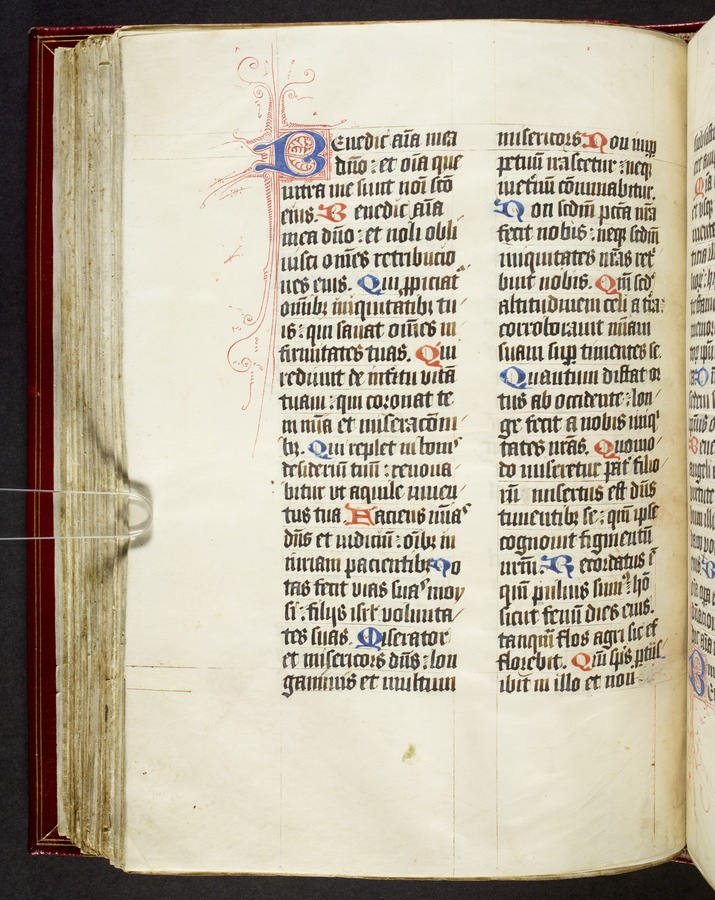 Benedic aīa mea
dn̄o : et oīa que
intra me sunt noī sc̄o
eius. Benedic aīa
mea dn̄o : et noli obli
uisci om̄es retributio
nes eius. Qui ꝓpiciat᷑
om̄ibꝫ iniquitatibꝫ tu
is : qui sanat om̄es in
firmitates tuas. Qui
redimit de int̄itu uitā
tuam : qui coronat te
in mīa et miseracōni
bꝫ. Qui replet in bonis
desideriū tuū : renoua
bitur vt aquile iuuen
tus tua. Faciens mīas
dn̄s et iudiciū : oībꝫ in
iuriam pacientibꝫ No
tas fecit vias suas moy
si : filijs isrl̄ volunta
tes suas. Miserator
et misericors dn̄s : lon
ganimis et multum
misericors Non in ꝑ
petuū irascetur : neqꝫ
inet̄nū cōminabitur.
Non scdm̄ pc̄ca nr̄a
fecit nobis : neqꝫ scdm̄
iniquitates nr̄as ret
buit nobis. Qm̄ scd̄
altitudinem celi a t̄ra :
corroborauit mīam
suam suꝑ timentes se.
Quantum distat or
tus ab occidente : lon
ge fecit a nobis iniqⁱ
tates nr̄as. Quomo
do miseretur pat̄ filio
rū misertus est dn̄s
timentibꝫ se : qm̄ ipse
cognouit figmentū
nr̄m. Recordatus ē
qm̄ puluis sum᷒ : hō
sicut fenū dies eius.
tanqm̄ flos agri sic ef
florebit. Qm̄ sp̄s ꝑt̄ns
ibit in illo et non